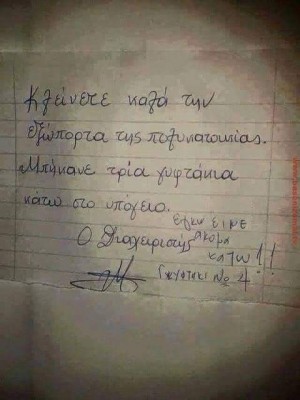 Κλείνετε καλά την
εξώπορτα της πολυκατοικίας.
Μπήκανε τρία γυφτάκια
κάτω στο υπόγειο.
Ο Διαχειριστής
εγκω ειΝΕ
ακομα
κατω!!
Γκυφτακι Νο 4